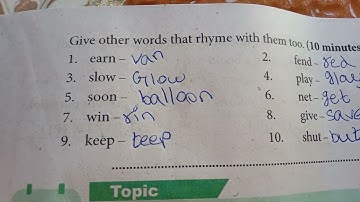 Give other words that rhyme with them too. (10 minutes
1. earn - van 2. fend - red
3. slow - Glow 4. play - glay
5. soon - balloon 6. net - get
7. win - rin 8. give - save
9. keep - teep 10. shut - but
Topic